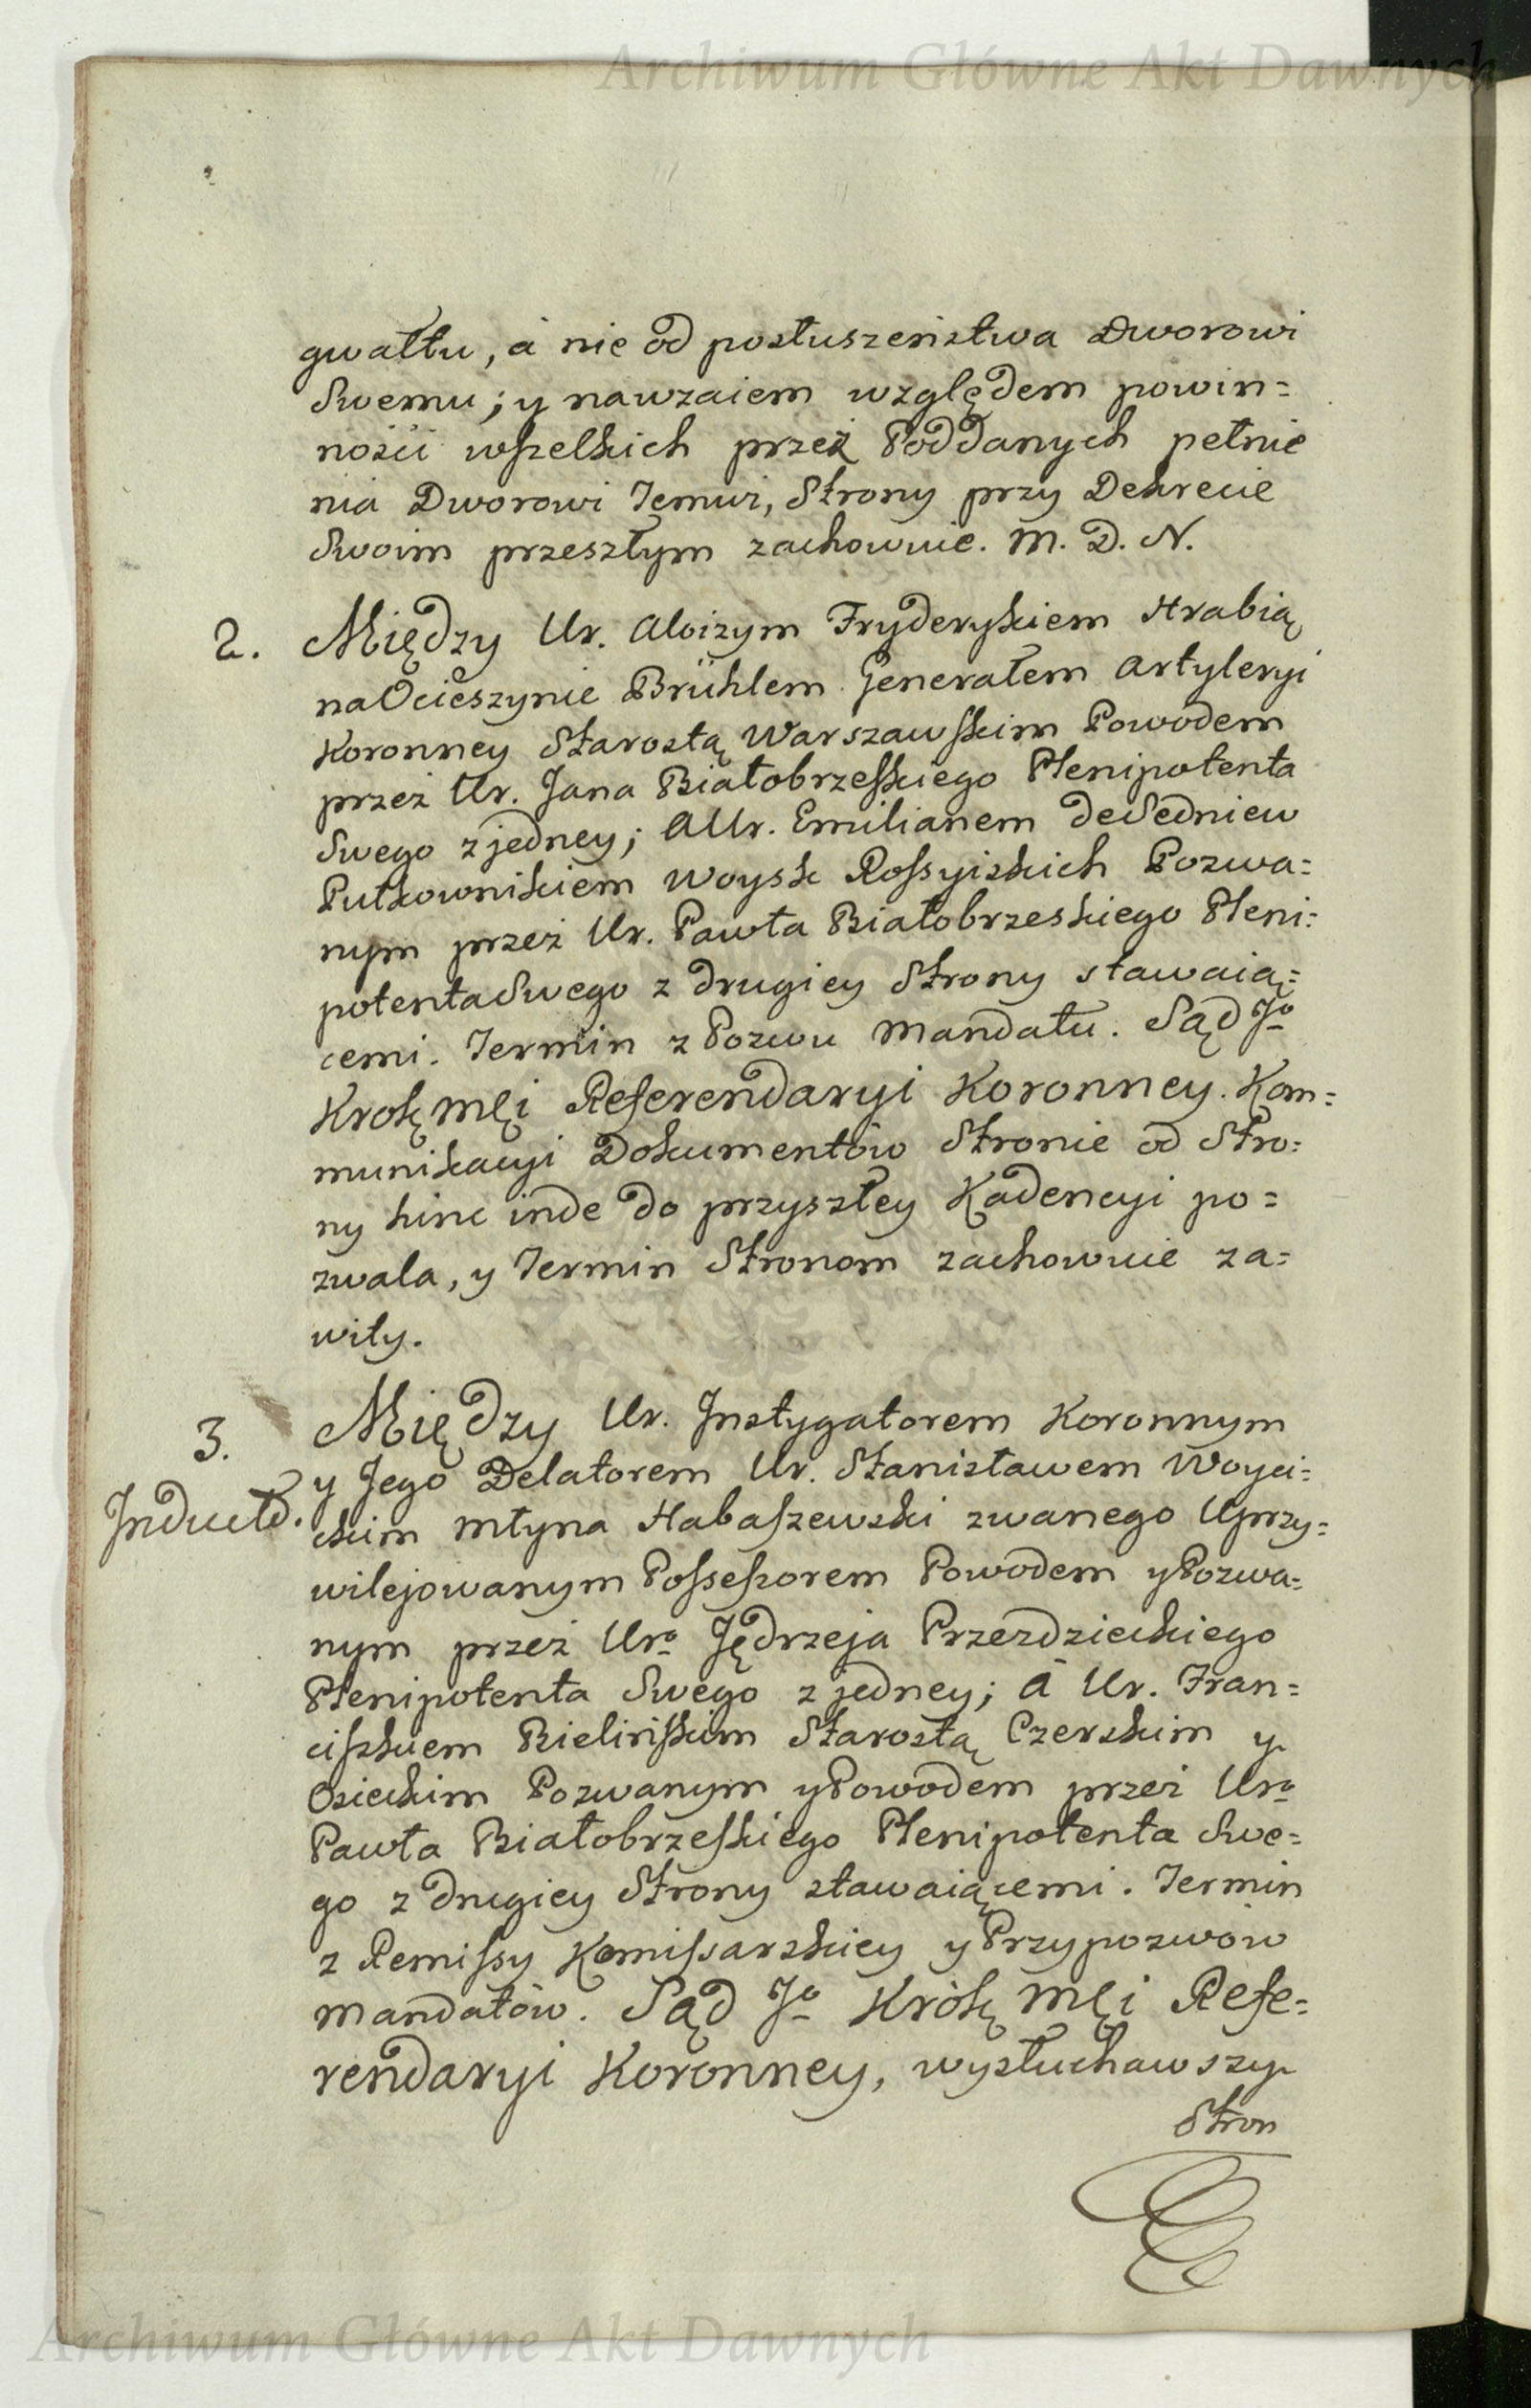 Archiwum Główne Akt Dawnych
gwałtu, à nie od posłuszeństwa Dworowi
Swemu; y nawzaiem względem powin=
ności wszelkich przez Poddanych pełnie
nia Dworowi Temuż, Strony przy Dekrecie
Swoim przeszłym zachowuie. M. D. N.
2. Między Ur. Aloizym Fryderykiem Hrabią
na Ocieszynie Brühlem Generałem Artyleryi
Koronney Starostą Warszawskim Powodem
przez Ur. Jana Białobrzeskiego Plenipotenta
Swego z jedney; A Ur. Emilianem de Sedniew
Pułkownikiem Woysk Rossyiskich Pozwa=
nym przez Ur. Pawła Białobrzeskiego Pleni=
potenta Swego z drugiey Strony stawaią=
cemi. Termin z Pozwu Mandatu. Sąd Jo
Krolę Mci Referendaryi Koronney. Kom=
munikacyi Dokumentów Stronie od Stro=
ny hinc inde do przyszłey Kadencyi po=
zwala, y Termin Stronom zachowuie za=
wity.
3. Między Ur. Instygatorem Koronnym
y Jego Delatorem Ur. Stanisławem Woyci=
Inducto. ckim Młyna Habaszewski zwanego Uprzy=
wilejowanym Possessorem Powodem y Pozwa=
nym przez Uro Jędrzeja Przezdzieckiego
Plenipotenta Swego z jedney; à Ur. Fran=
ciszkiem Bielińskim Starostą Czerskim y
Osieckim Pozwanym y Powodem przez Uro
Pawła Białobrzeskiego Plenipotenta Swe=
go z drugiey Strony stawaiącemi. Termin
z Remissy Komissarskiey y Przypozwów
Mandatów. Sąd Jo Królę Mci Refe=
rendaryi Koronney, wysłuchawszy
Stron
Archiwum Główne Akt Dawnych